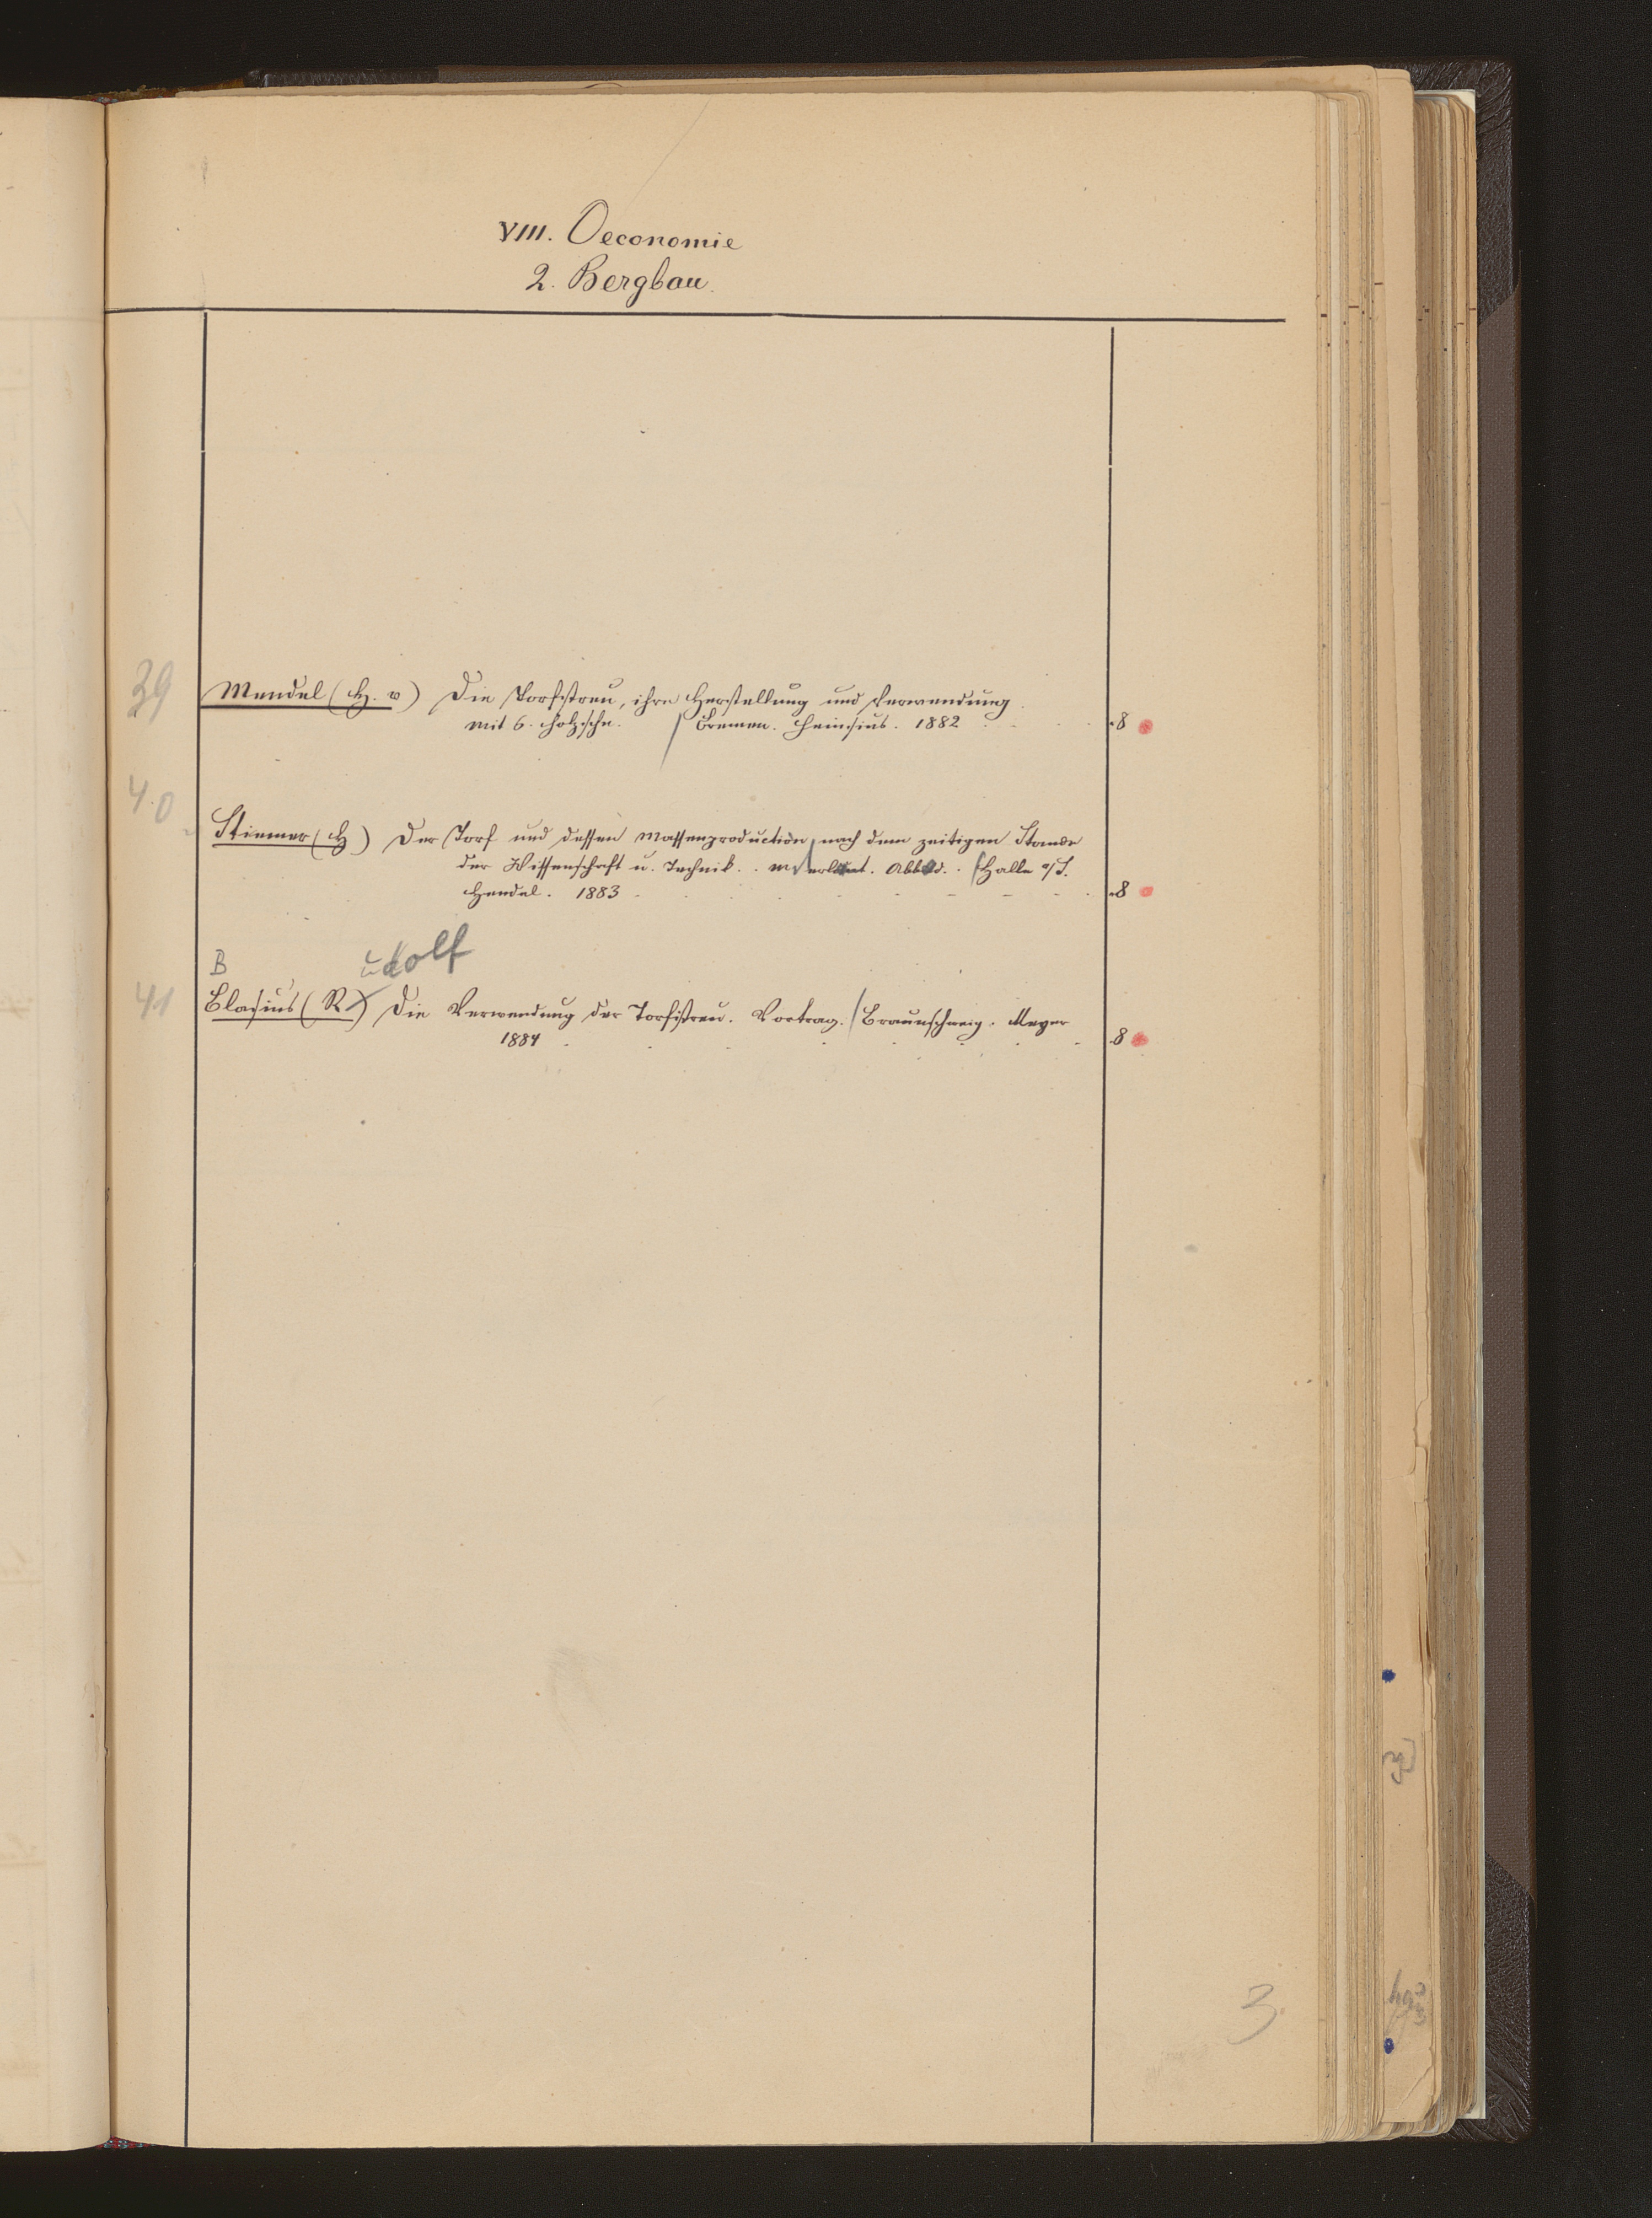 VIII. Oeconomie
2. Bergbau.
39 Mendel (H. v) Die Torfstreu, ihre Herstellung und Verwendung
mit 6. Holzschn. / Bremen. Heinsius. 1882 8
40
Stiemer (H) Der Torf und dessen Massenproduction nach dem zeitigen Stande
der Wissenschaft u. Technik. m. erläut. Abbild. / Halle a/S.
Hendel. 1883 8
B udolf
41 Blasius (R) Die Verwendung der Torfstreu. Vortrag. / Braunschweig. Meyer
1884 8
3